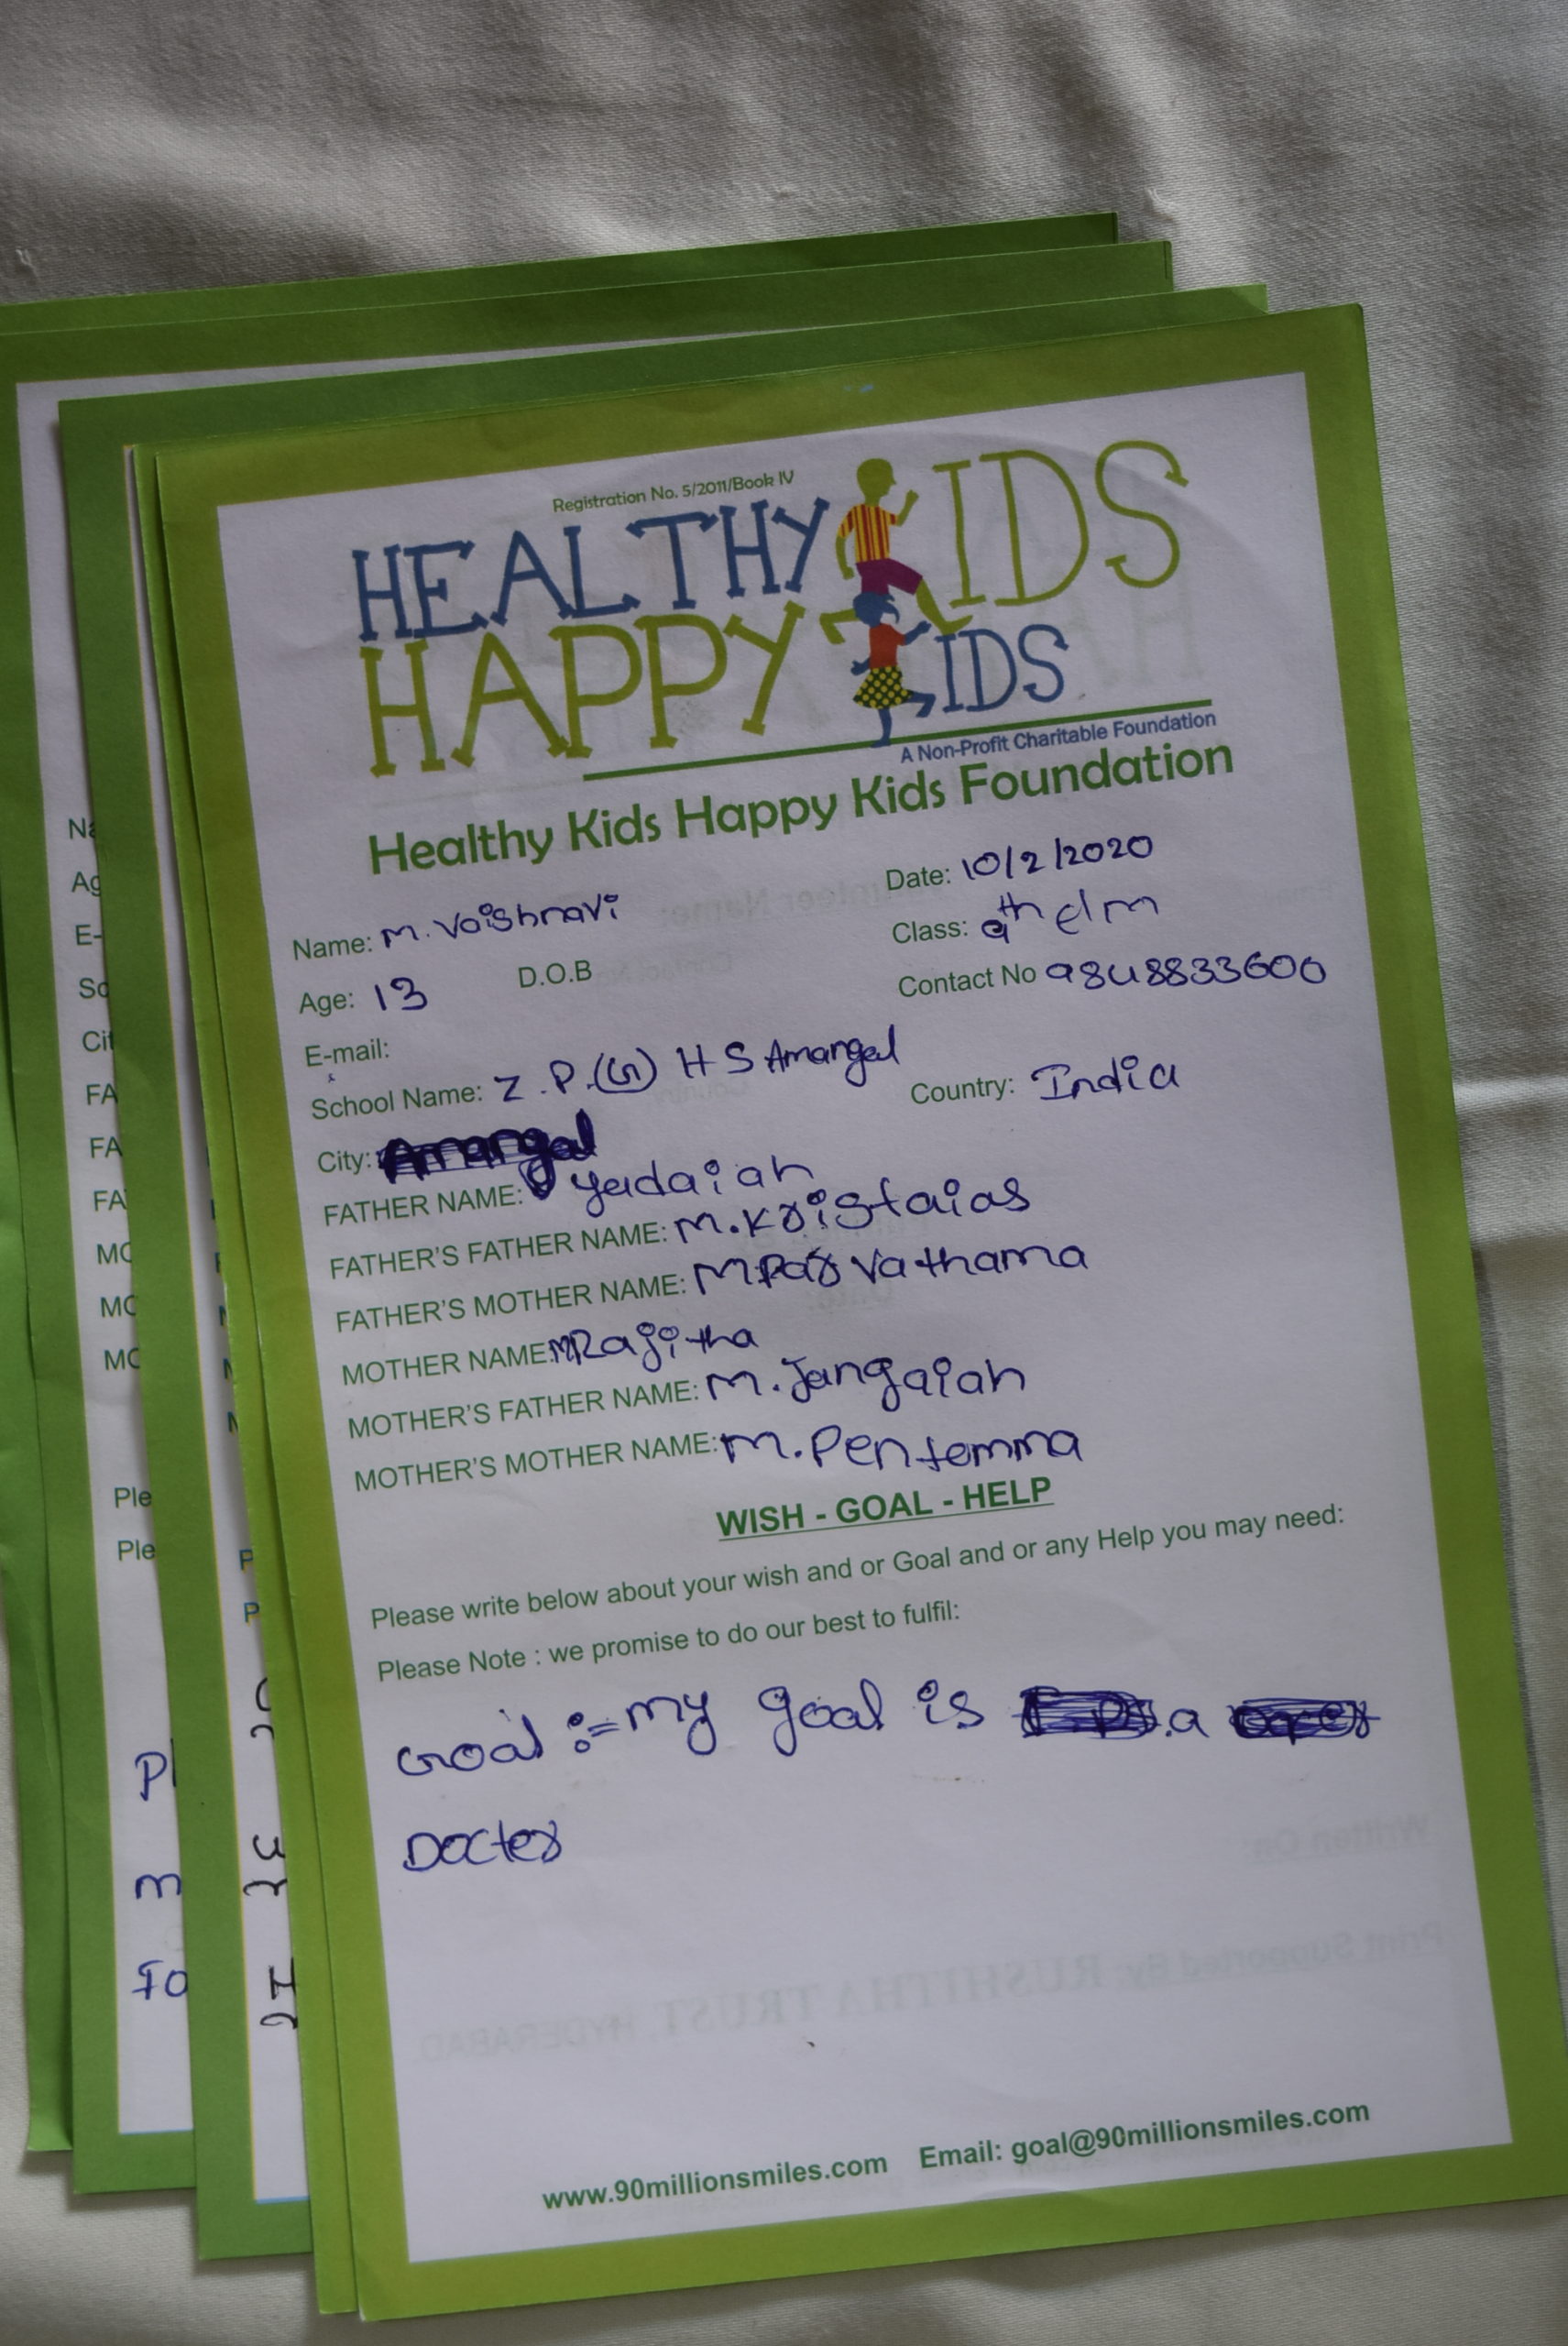 Registration No. 5/2011/Book IV
HEALTHY KIDS
HAPPY KIDS
A Non-Profit Charitable Foundation
Healthy Kids Happy Kids Foundation
Date: 10/2/2020
Name: M. Vaishnavi
Class: 9th E/m
Age: 13 D.O.B
Contact No 9848833600
E-mail:
School Name: Z.P.(G) H S Amangal
Country: India
City: Amangal
FATHER NAME: yadaiah
FATHER'S FATHER NAME: M.Kristaias
FATHER'S MOTHER NAME: M Par Vathama
MOTHER NAME: M Rajitha
MOTHER'S FATHER NAME: M. Jangaiah
MOTHER'S MOTHER NAME: M. Pentamma
WISH - GOAL - HELP
Please write below about your wish and or Goal and or any Help you may need:
Please Note : we promise to do our best to fulfil:
Goal := my goal is a
Docter
www.90millionsmiles.com Email: goal@90millionsmiles.com